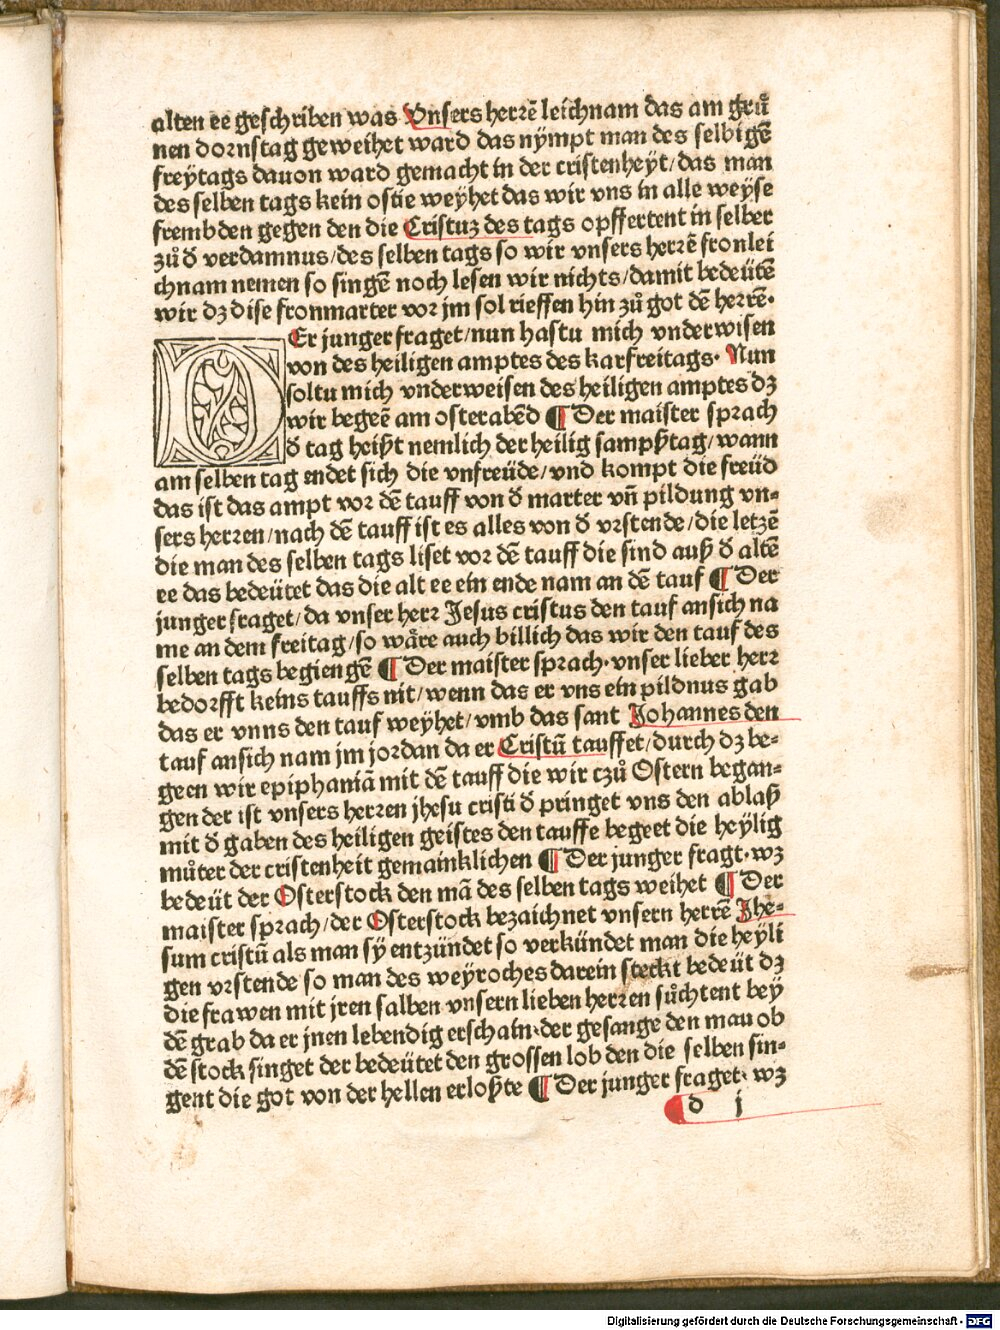 alten ee geschriben was Vnsers herrē leichnam das am grů
nen dornstag geweihet ward das nympt man des selbigē
freÿtags dauon ward gemacht in der cristenheÿt/das man
des selben tags kein ostie weÿhet das wir vns in alle weÿse
frembden gegen den die Cristuz des tags opffertent in selber
zů d̄ verdamnus/des selben tags so wir vnsers herrē fronlei
chnam nemen so singē noch lesen wir nichts/damit bedeütē
wir dz dise fronmarter vor jm sol rieffen hin zů got dē herrē.
DEr junger fraget/nun hastu mich vnderwisen
von des heiligen amptes des karfreitags. Nun
soltu mich vnderweisen des heiligen amptes dz
wir begeē am osterabēd ¶ Der maister sprach
d̄ tag heißt nemlich der heilig sampßtag/wann
am selben tag endet sich die vnfreüde/vnd kompt die freüd
das ist das ampt vor dē tauff von d̄ marter vn̄ pildung vn=
sers herren/nach dē tauff ist es alles von d̄ vrstende/die letzē
die man des selben tags liset vor dē tauff die sind auß d̄ altē
ee das bedeütet das die alt ee ein ende nam an dē tauf ¶ Der
junger fraget/da vnser herr Jesus cristus den tauf ansich na
me an dem freitag/so wåre auch billich das wir den tauf des
selben tags begiengē ¶ Der maister sprach.vnser lieber herr
bedorfft keins tauffs nit/wenn das er vns ein pildnus gab
das er vnns den tauf weÿhet/vmb das sant Johannes den
tauf ansich nam jm jordan da er Cristū tauffet/durch dz be=
geen wir epiphaniā mit dē tauff die wir czů Ostern began=
gen der ist vnsers herren jhesu cristi d̄ pringet vns den ablaß
mit d̄ gaben des heiligen geistes den tauffe begeet die heÿlig
můter der cristenheit gemainklichen ¶ Der junger fragt.wz
bedeüt der Osterstock den mā des selben tags weihet ¶ Der
maister sprach/der Osterstock bezaichnet vnsern herrē Jhe=
sum cristū als man sÿ entzündet so verkündet man die heÿli
gen vrstende so man des weÿroches darein steckt bedeüt dz
die frawen mit jren salben vnsern lieben herren sůchtent beÿ
dē grab da er jnen lebendig erschain.der gesange den man ob
dē stock singet der bedeütet den grossen lob den die selben sin=
gent die got von der hellen erloßte ¶ Der junger fraget. wz
d j
Digitalisierung gefördert durch die Deutsche Forschungsgemeinschaft - DFG